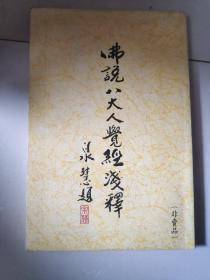 佛説八大人覺經淺釋
泉慧題
（非賣品）